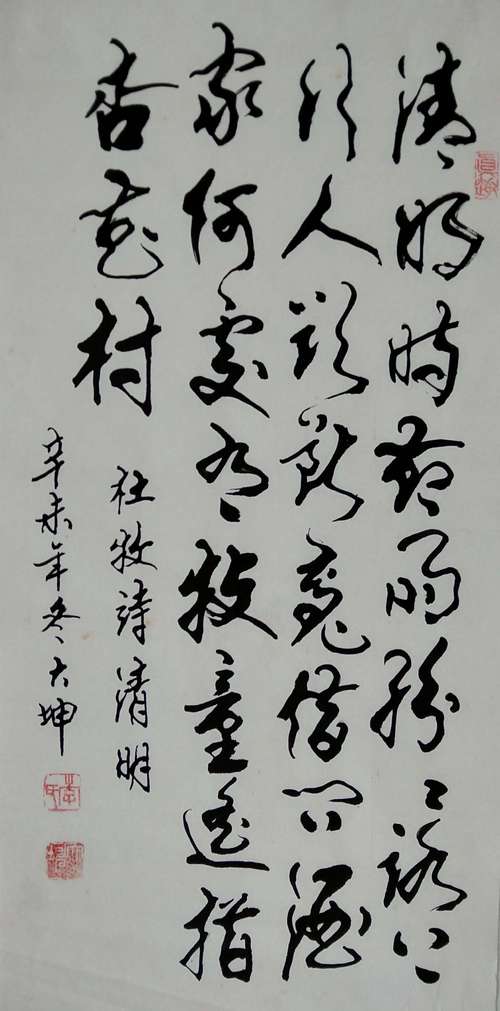 清明時節雨紛〻路上
行人欲斷魂借問酒
家何處有牧童遙指
杏花村
杜牧詩清明
辛未年冬大坤